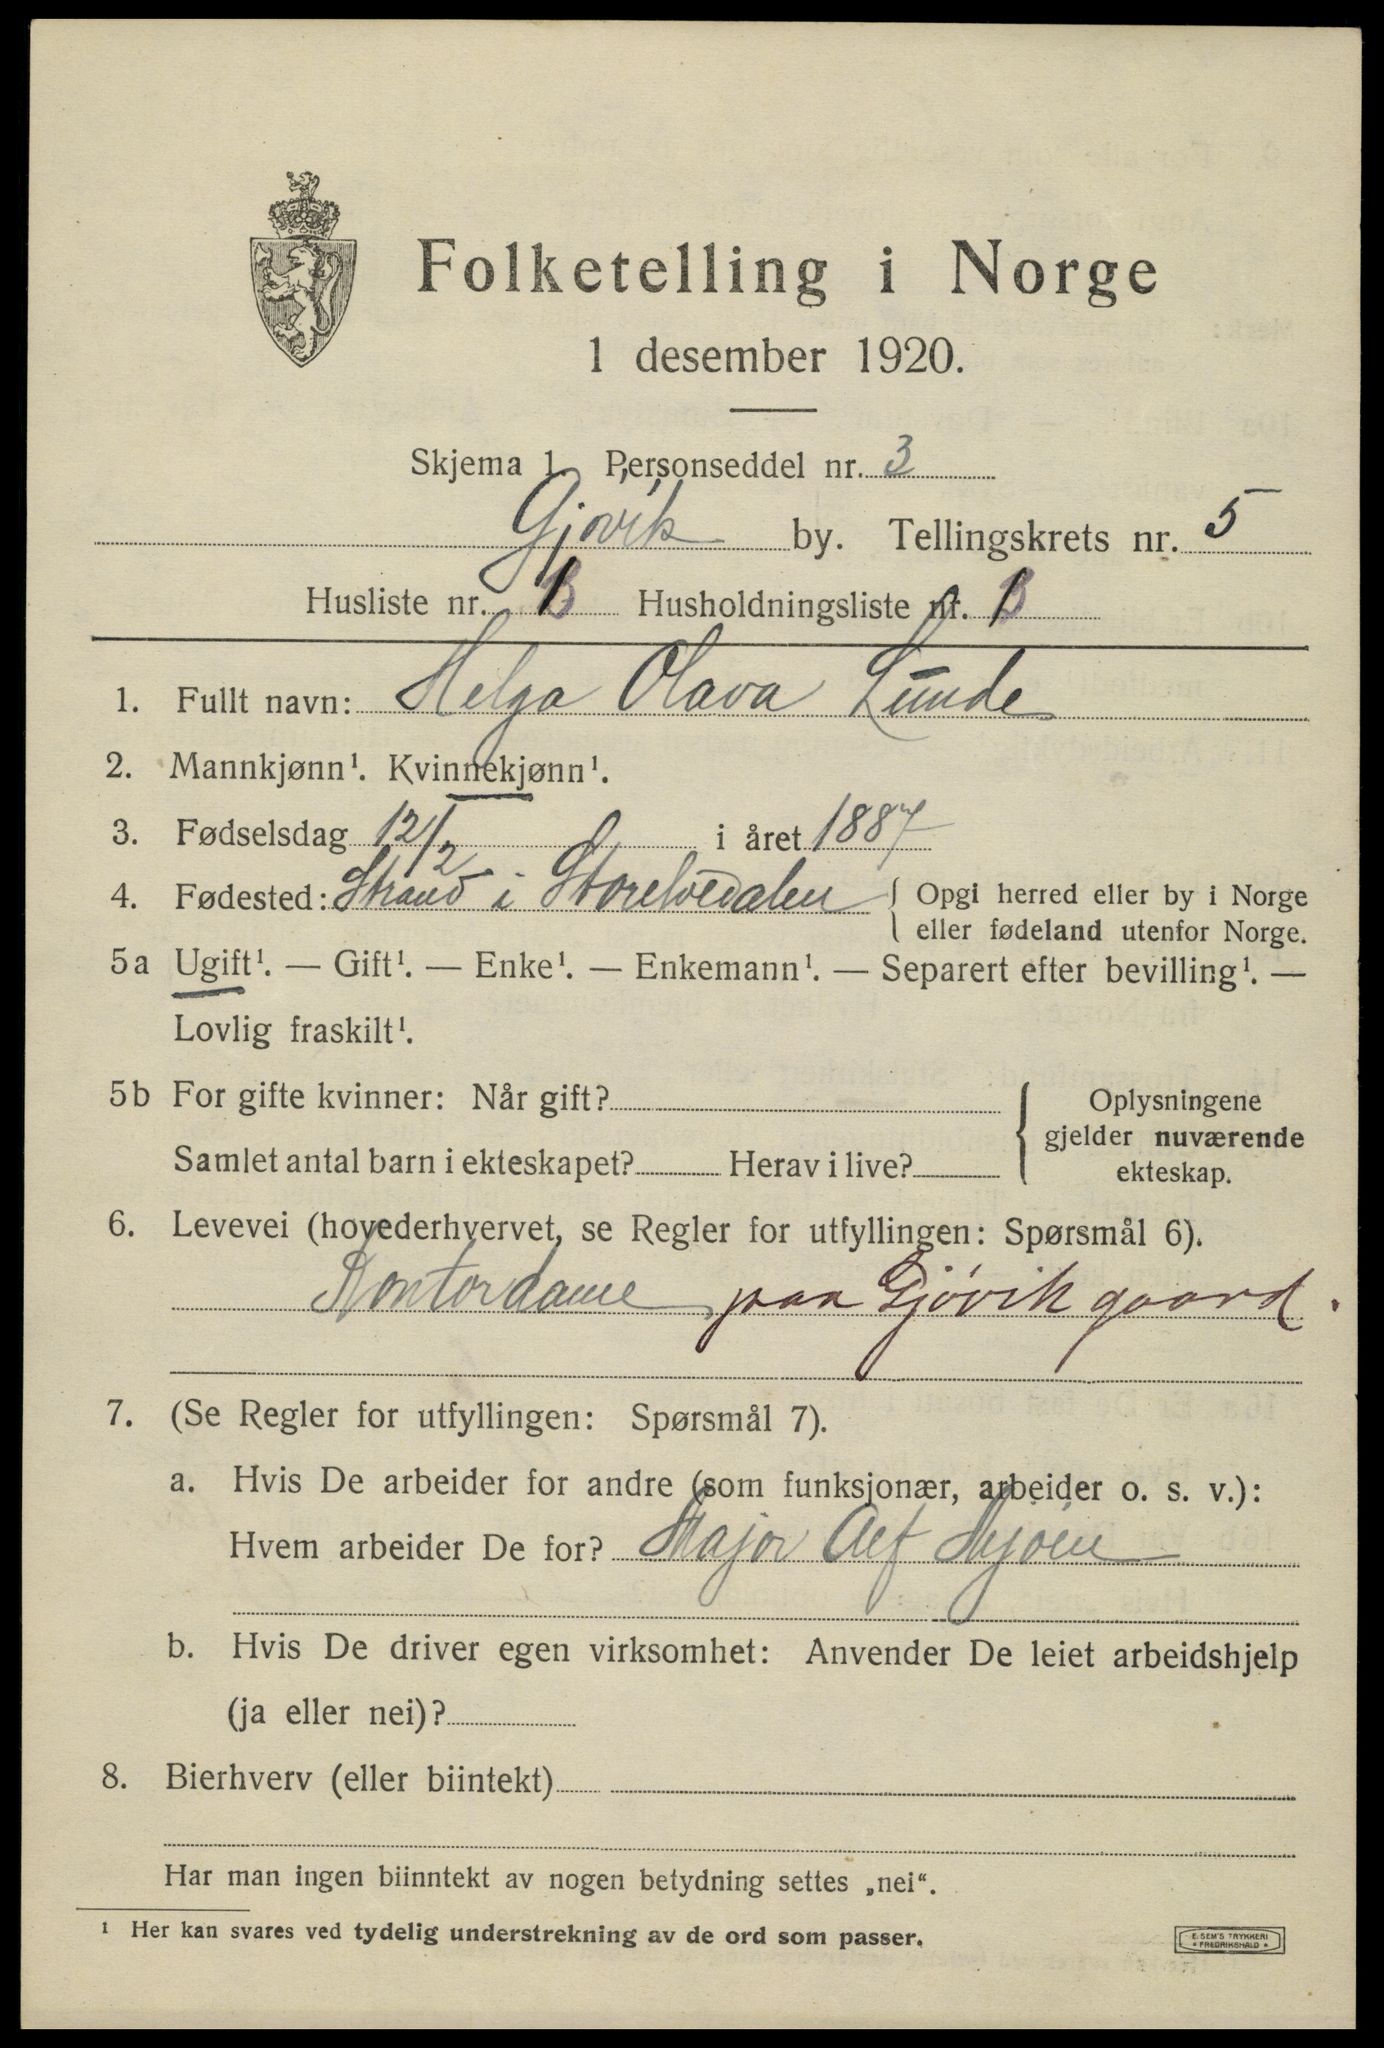 Folketelling i Norge
1 desember 1920.
Skjema 1. Personseddel nr. 3
Gjøvik by. Tellingskrets nr. 5
Husliste nr. Husholdningsliste nr.
1. Fullt navn: Helga Olava Lunde
2. Mannkjønn¹. Kvinnekjønn¹.
3. Fødselsdag 12/2 i året 1887
4. Fødested: Strand i Storelvedalen { Opgi herred eller by i Norge
eller fødeland utenfor Norge.
5a Ugift¹. — Gift¹. — Enke¹. — Enkemann¹. — Separert efter bevilling¹. —
Lovlig fraskilt¹.
5b For gifte kvinner: Når gift?
Samlet antal barn i ekteskapet? Herav i live?
Oplysningene
gjelder nuværende
ekteskap.
6. Levevei (hovederhvervet, se Regler for utfyllingen: Spørsmål 6).
Kontordame paa Gjøvik gaard.
7. (Se Regler for utfyllingen: Spørsmål 7).
a. Hvis De arbeider for andre (som funksjonær, arbeider o. s. v.):
Hvem arbeider De for? Major Alf Mjøen
b. Hvis De driver egen virksomhet: Anvender De leiet arbeidshjelp
(ja eller nei)?
8. Bierhverv (eller biintekt)
Har man ingen biinntekt av nogen betydning settes „nei“.
¹ Her kan svares ved tydelig understrekning av de ord som passer.
E. SEM'S TRYKKERI
* FREDRIKSHALD *